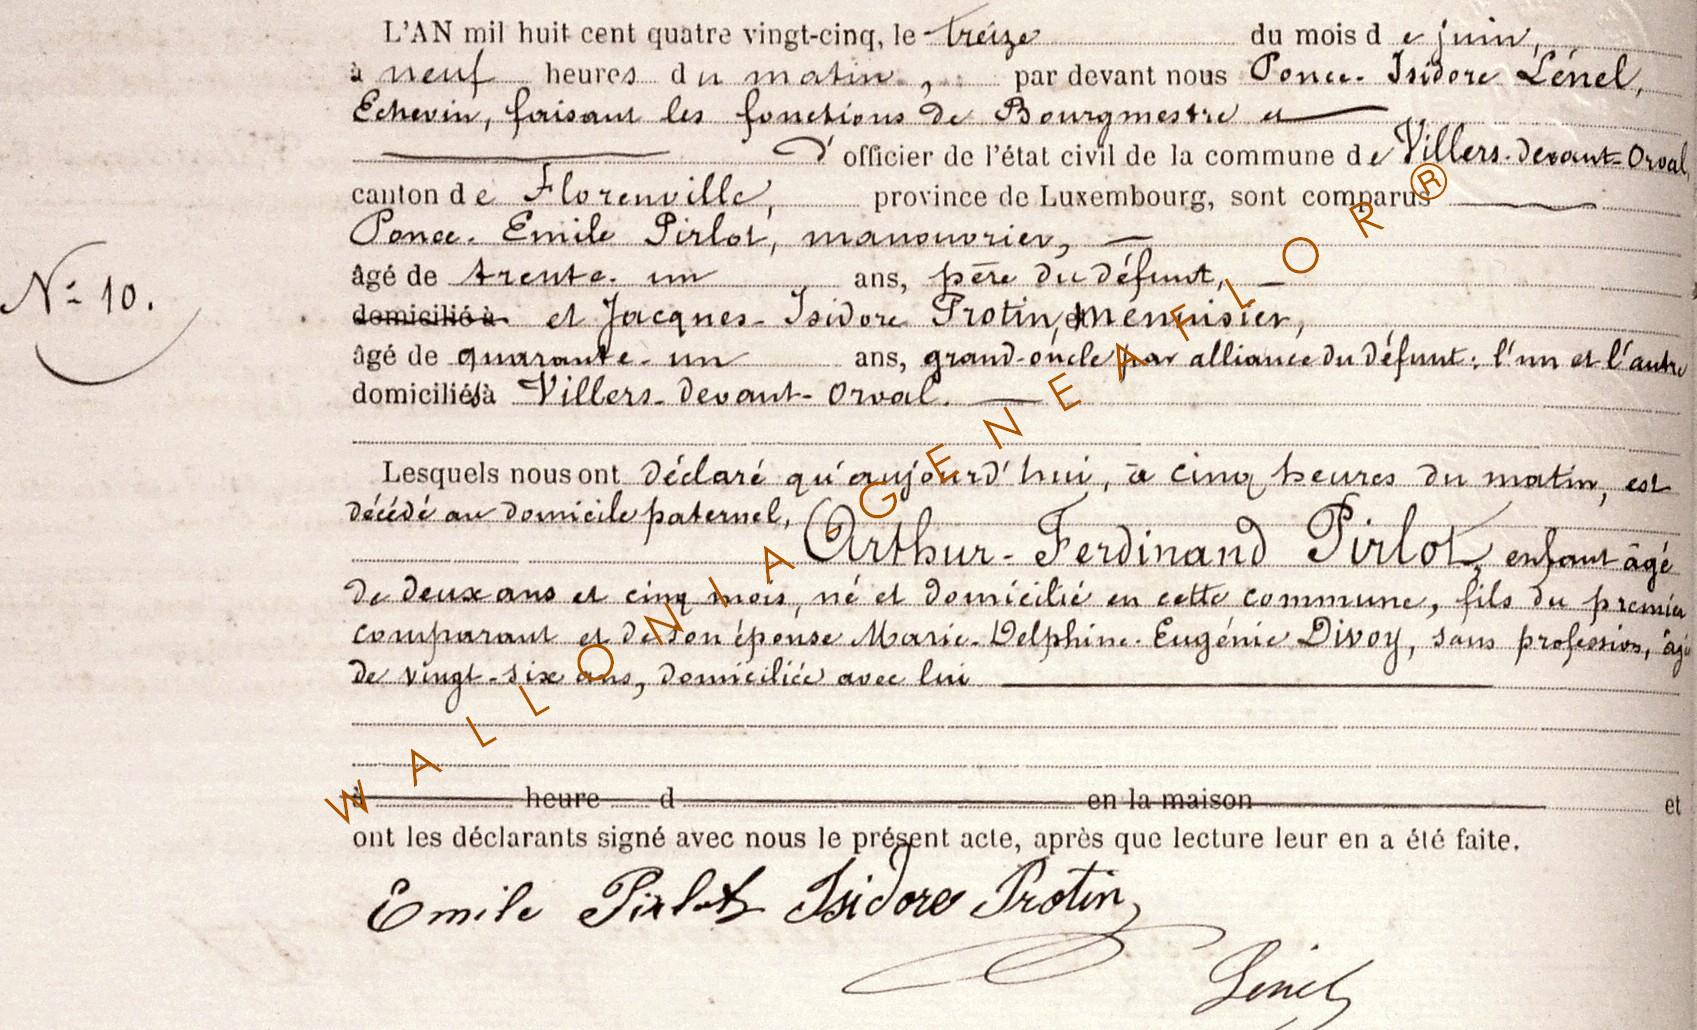 L'AN mil huit cent quatre vingt-cinq, le treize du mois d e juin,
à neuf heures du matin, par devant nous Ponce-Isidore Lénel,
Echevin, faisant les fonctions de Bourgmestre et
d'officier de l'état civil de la commune de Villers-devant-Orval,
canton de Florenville, province de Luxembourg, sont comparus
Ponce-Emile Pirlot, manouvrier,
âgé de trente-un ans, père du défunt,
N° 10.
domicilié à et Jacques-Isidore Protin, menuisier,
âgé de quarante-un ans, grand-oncle par alliance du défunt: l'un et l'autre
domiciliés à Villers-devant-Orval.
Lesquels nous ont déclaré qu'aujourd'hui, à cinq heures du matin, est
décédé au domicile paternel,
Arthur-Ferdinand Pirlot, enfant âgé
de deux ans et cinq mois, né et domicilié en cette commune, fils du premier
comparant et de son épouse Marie-Delphine-Eugénie Divoy, sans profession, âgée
de vingt-six ans, domiciliée avec lui
à heure d en la maison et
ont les déclarants signé avec nous le présent acte, après que lecture leur en a été faite.
Emile Pirlot Isidore Protin
Lénel
WALLONIA-GENEAFLOR®